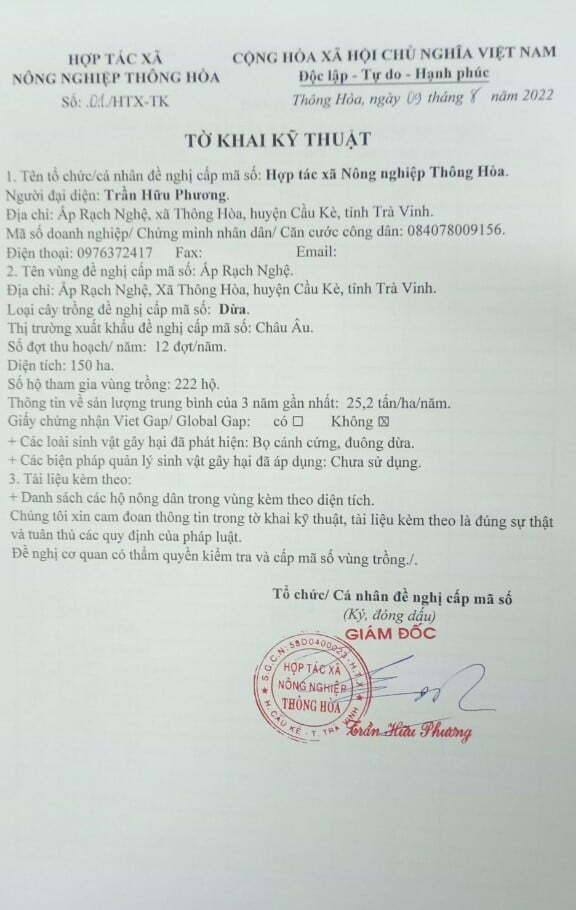 HỢP TÁC XÃ
NÔNG NGHIỆP THÔNG HÒA
Số: .01./HTX-TK
CỘNG HÒA XÃ HỘI CHỦ NGHĨA VIỆT NAM
Độc lập - Tự do - Hạnh phúc
Thông Hòa, ngày 09 tháng 8 năm 2022
TỜ KHAI KỸ THUẬT
1. Tên tổ chức/cá nhân đề nghị cấp mã số: Hợp tác xã Nông nghiệp Thông Hòa.
Người đại diện: Trần Hữu Phương.
Địa chỉ: Ấp Rạch Nghệ, xã Thông Hòa, huyện Cầu Kè, tỉnh Trà Vinh.
Mã số doanh nghiệp/ Chứng minh nhân dân/ Căn cước công dân: 084078009156.
Điện thoại: 0976372417 Fax: Email:
2. Tên vùng đề nghị cấp mã số: Ấp Rạch Nghệ.
Địa chỉ: Ấp Rạch Nghệ, Xã Thông Hòa, huyện Cầu Kè, tỉnh Trà Vinh.
Loại cây trồng đề nghị cấp mã số: Dừa.
Thị trường xuất khẩu đề nghị cấp mã số: Châu Âu.
Số đợt thu hoạch/ năm: 12 đợt/năm.
Diện tích: 150 ha.
Số hộ tham gia vùng trồng: 222 hộ.
Thông tin về sản lượng trung bình của 3 năm gần nhất: 25,2 tấn/ha/năm.
Giấy chứng nhận Viet Gap/ Global Gap: có ☐ Không ☒
+ Các loài sinh vật gây hại đã phát hiện: Bọ cánh cứng, đuông dừa.
+ Các biện pháp quản lý sinh vật gây hại đã áp dụng: Chưa sử dụng.
3. Tài liệu kèm theo:
+ Danh sách các hộ nông dân trong vùng kèm theo diện tích.
Chúng tôi xin cam đoan thông tin trong tờ khai kỹ thuật, tài liệu kèm theo là đúng sự thật
và tuân thủ các quy định của pháp luật.
Đề nghị cơ quan có thẩm quyền kiểm tra và cấp mã số vùng trồng./.
Tổ chức/ Cá nhân đề nghị cấp mã số
(Ký, đóng dấu)
GIÁM ĐỐC
S.G.C.N: 58D0400023 - H.T.X
HỢP TÁC XÃ
NÔNG NGHIỆP
THÔNG HÒA
H. CẦU KÈ - T. TRÀ VINH
Trần Hữu Phương